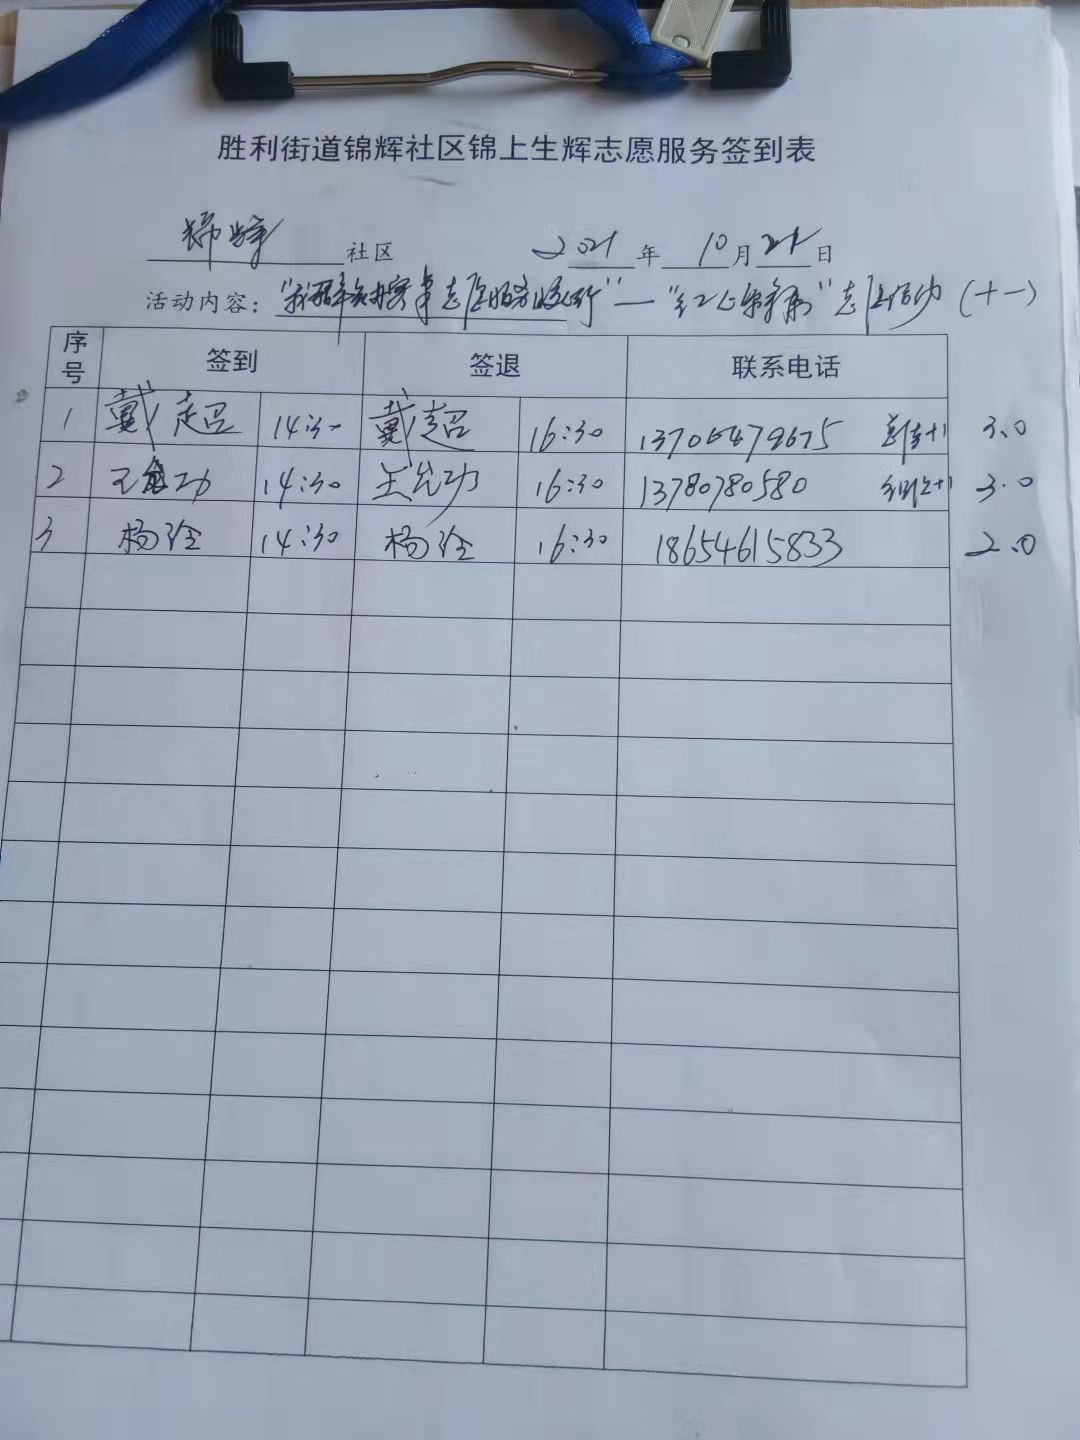 胜利街道锦辉社区锦上生辉志愿服务签到表
锦辉 社区 2021 年 10 月 21 日
活动内容：“我为群众办实事志愿服务 ”—“红心 ”志愿活动（十一）
序号 签到 签退 联系电话
1 戴超 14:30 戴超 16:30 13706479675 +1 3.0
2 王 功 14:30 王 功 16:30 13780780580 组织+1 3.0
3 杨 14:30 杨 16:30 18654615833 2.0